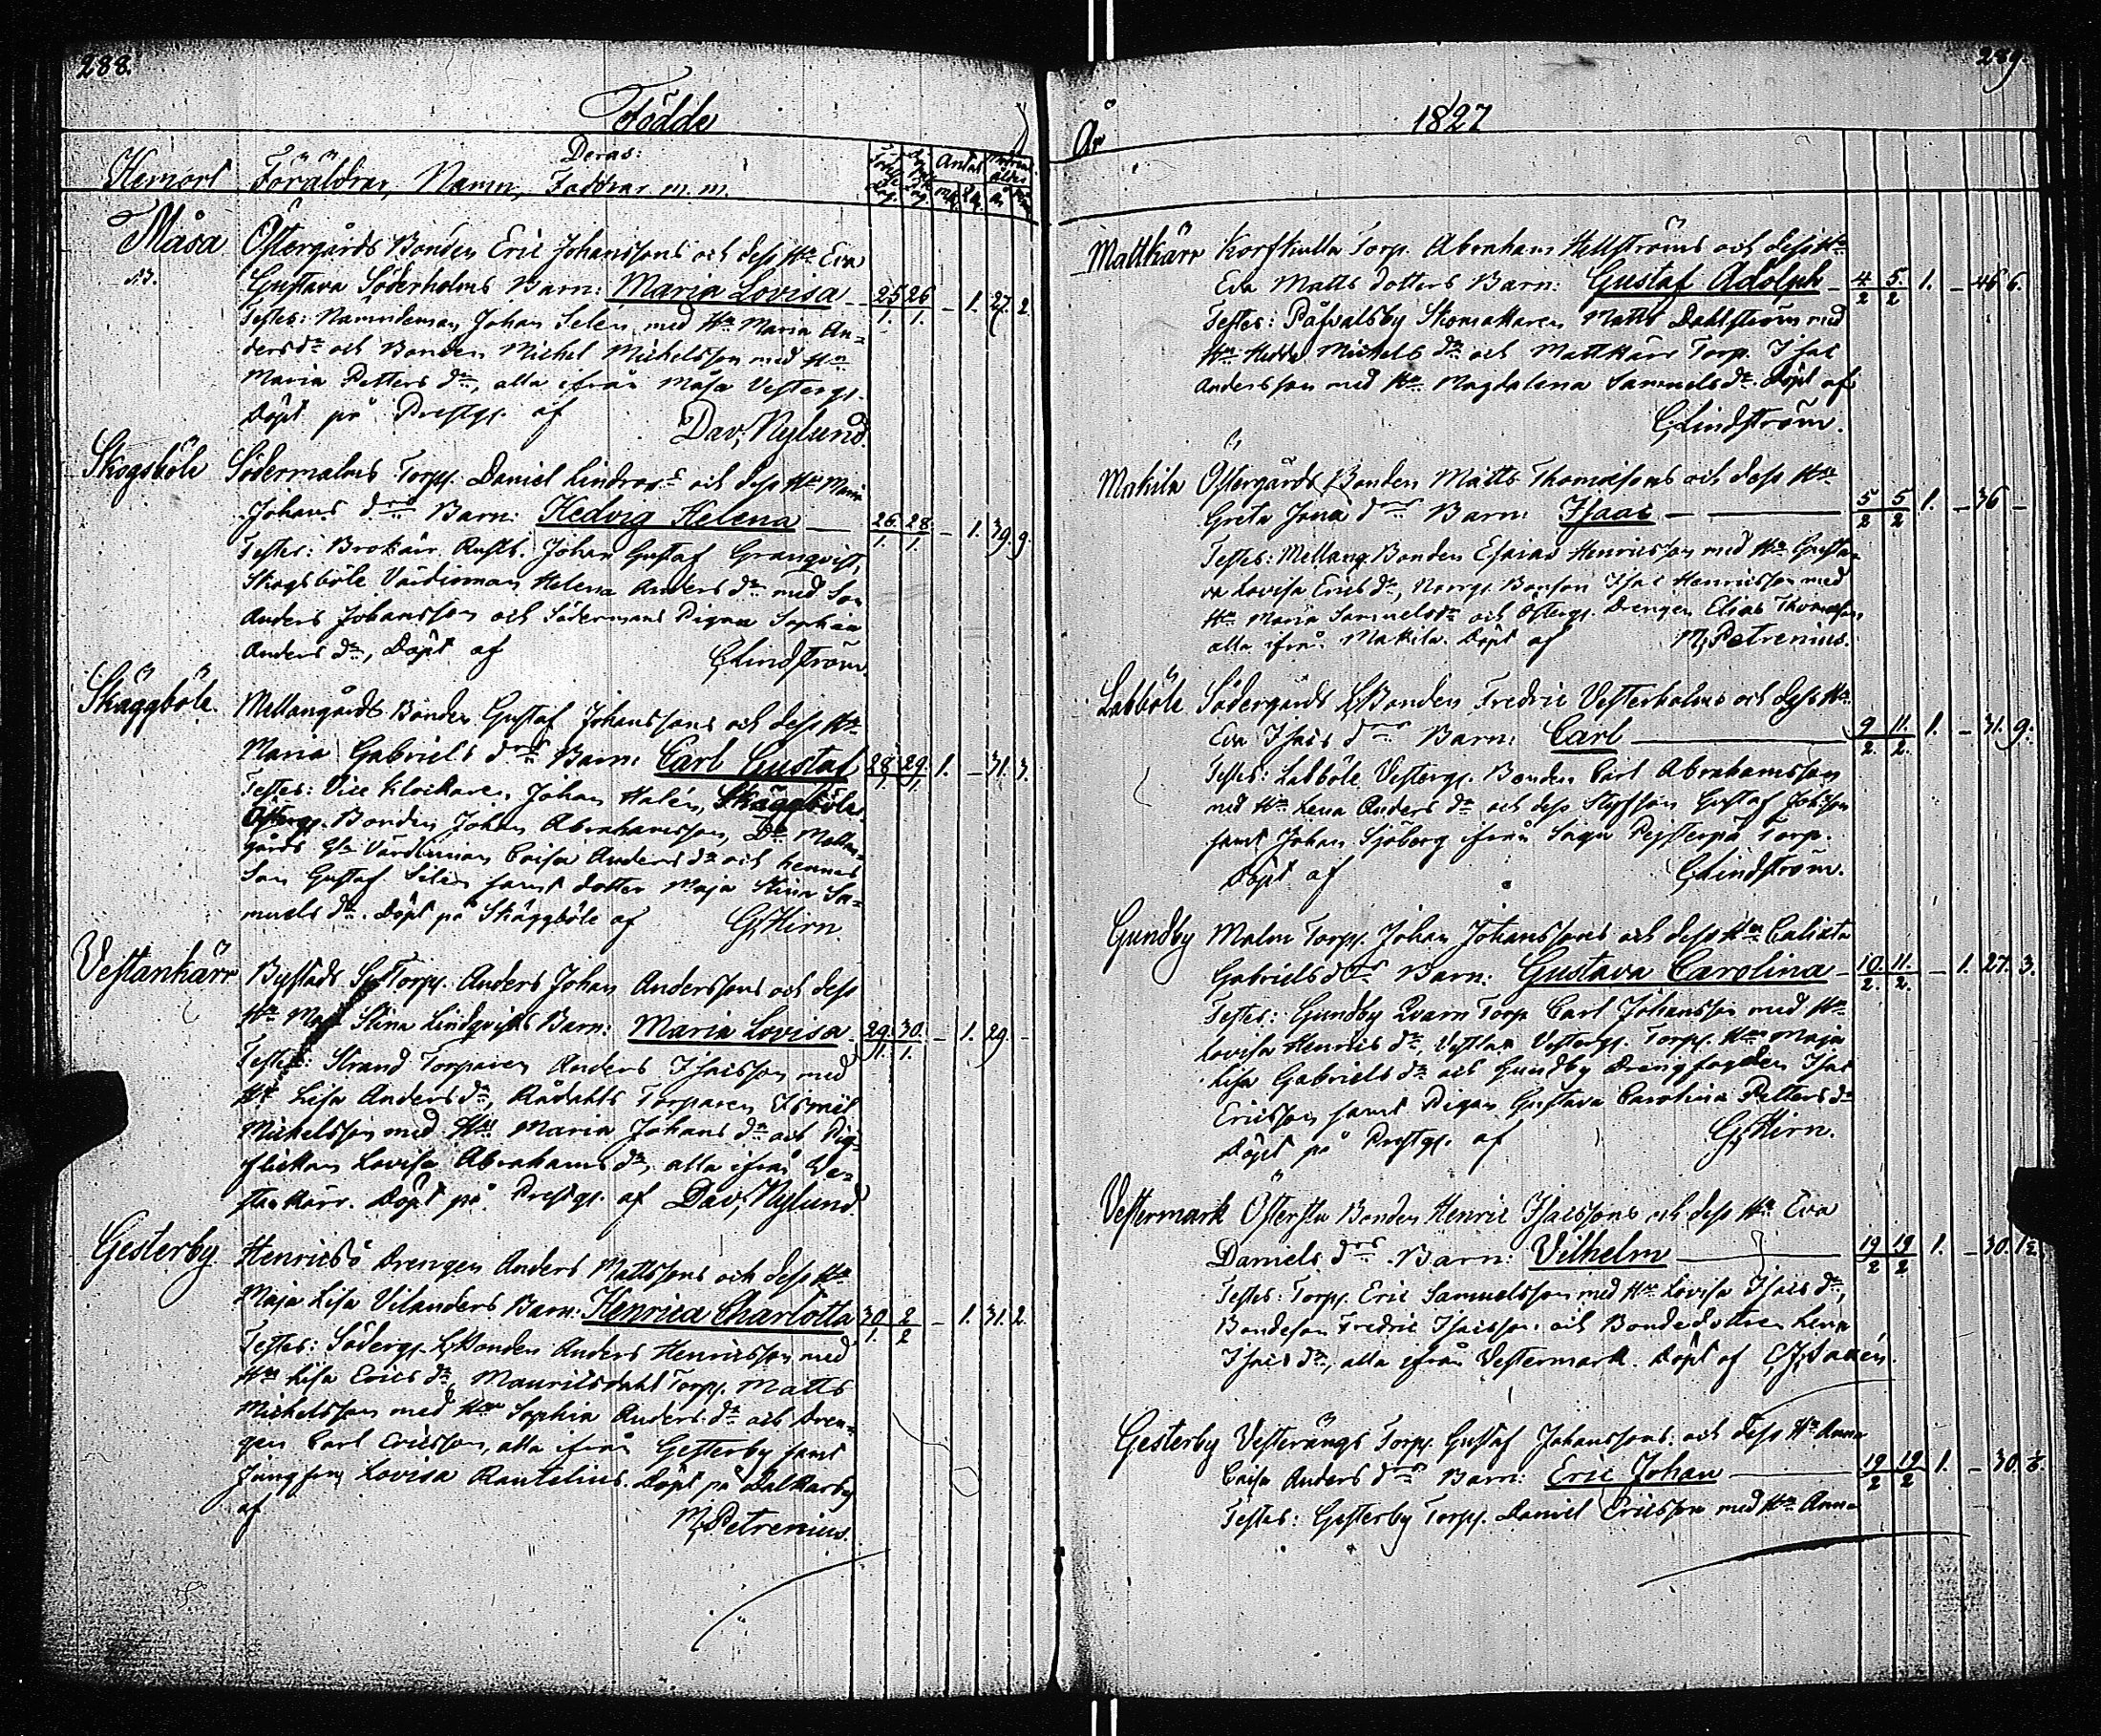 288.
Födde
Hemort Föräldrar, Namn, Deras: Faddrar m. m.
Antal
Måsa Östergårds Bonden Eric Johanssons och dess Hu Eva
Gustava Söderholms Barn: Maria Lovisa 25/1. 26/1. - 1. 27. 2.
Testes: Nämndeman Johan Selén med Hu Maria An=
dersdr och Bonden Michel Michelsson med Hu
Maria Petters dr, alla ifrån Måsa Vesterg.
Döpt på Prestg. af Dav; Nylund.
Skogsböle Södermalms Torp. Daniel Lindros's och dess Hu Maria
Johans drs Barn: Hedvig Helena 26/1. 28/1. - 1. 39. 9.
Testes: Brokärr Rusth. Johan Gustaf Granqvist,
Skogsböle Värdinnan Helena Anders dr med Son
Anders Johansson och Södermans Pigan Sophia
Anders dr, Döpt af G, Lindström.
Skäggböle. Mellangårds Bonden Gustaf Johanssons och dess Hu
Maria Gabriels drs Barn: Carl Gustaf 28/1. 29/1. 1. - 31. 3.
Testes: Vice Klockaren Johan Halén, Skäggböle
Österg. Bonden Johan Abrahamsson, Do Mellan=
gårds Värdinnan Caisa Anders dr och hennes
Son Gustaf Selén samt dotter Maja Stina Sa=
muels dr. Döpt på Skäggböle af G, Hirn.
Vestankärr Bystads Torp. Anders Johan Anderssons och dess
Hu Maja Stina Lindqvists Barn: Maria Lovisa 29/1. 30/1. - 1. 29. -
Testes: Strand Torparen Anders Isaisson med
Hu Lisa Anders dr, Rådahls Torparen Esmil
Michelsson med Hu Maria Johans dr och Pig=
flickan Lovisa Abrahams dr, alla ifrån Ve=
stankärr. Döpt på Prestg. af Dav; Nylund.
Gesterby. Henriks Drengen Anders Mattssons och dess Hu
Maja Lisa Vilanders Barn: Henrica Charlotta 30/1. 2/2 - 1. 31. 2.
Testes: Söderg. Bonden Anders Henricsson med
Hu Lisa Erics dr, Mauritsdahl Torp. Matts
Michelsson med Hu Sophia Anders dr och Dren=
gen Carl Ericsson, alla ifrån Gesterby samt
Jungfru Lovisa Rantelius. Döpt på Dalkarby
af M, Petrenius.
289.
År 1827
Mattkärr Korskulla Torp. Abraham Hellströms och dess Hu
Eva Matts dotters Barn: Gustaf Adolph 4/2 5/2 1. - 46 6.
Testes: Påfvalsby Skomakaren Matts Dahlström med
Hu Hedda Michels dr och Mattkärr Torp. Isac
Andersson med Hu Magdalena Samuels dr. Döpt af
G, Lindström.
Makila Östergårds Bonden Matts Thomassons och dess Hu
Greta Jona drs Barn: Isaac 5/2 5/2 1. - 36 -
Testes: Mellang. Bonden Esaias Henricsson med Hu Gusta=
va Lovisa Erics dr, Norrg. Bonden Isac Henricsson med
Hu Maria Samuels dr och Österg. Drengen Elias Thomasson,
alla ifrån Makila. Döpt af M, Petrenius.
Labböle Södergårds Bonden Fredric Vesterholms och dess Hu
Eva Isacs drs Barn: Carl 9/2 11/2. 1. - 31. 9.
Testes: Labböle Vesterg. Bonden Carl Abrahamsson
med Hu Lena Anders dr och dess Styfson Gustaf Johsson
samt Johan Sjöberg ifrån Torp.
Döpt af G, Lindström.
Gundby Malm Torp. Johan Johanssons och dess Hu Calixta
Gabriels drs Barn: Gustava Carolina 10/2. 11/2. - 1. 27. 3.
Testes: Gundby Qvarn Torp. Carl Johansson med Hu
Lovisa Henrics dr, Vesterg. Torp. Hu Maja
Lisa Gabriels dr och Gundby Drengfogden Isac
Ericsson samt Pigan Gustava Carolina Petters dr
Döpt på Prestg. af G, Hirn.
Vestermark Östersta Bonden Henric Isacssons och dess Hu Eva
Daniels drs Barn: Vilhelm 19/2 19/2 1. - 30. 1½.
Testes: Torp. Eric Samuelsson med Hu Lovisa Isacs dr,
Bondeson Fredric Isacsson och Bondedottren Lena
Isacs dr, alla ifrån Vestermark. Döpt af
Gesterby Vesterängs Torp. Gustaf Johanssons och dess Hu Anna
Caisa Anders drs Barn: Eric Johan 19/2 19/2 1. - 30.
Testes: Gesterby Torp. Daniel Ericsson med Hu Anna